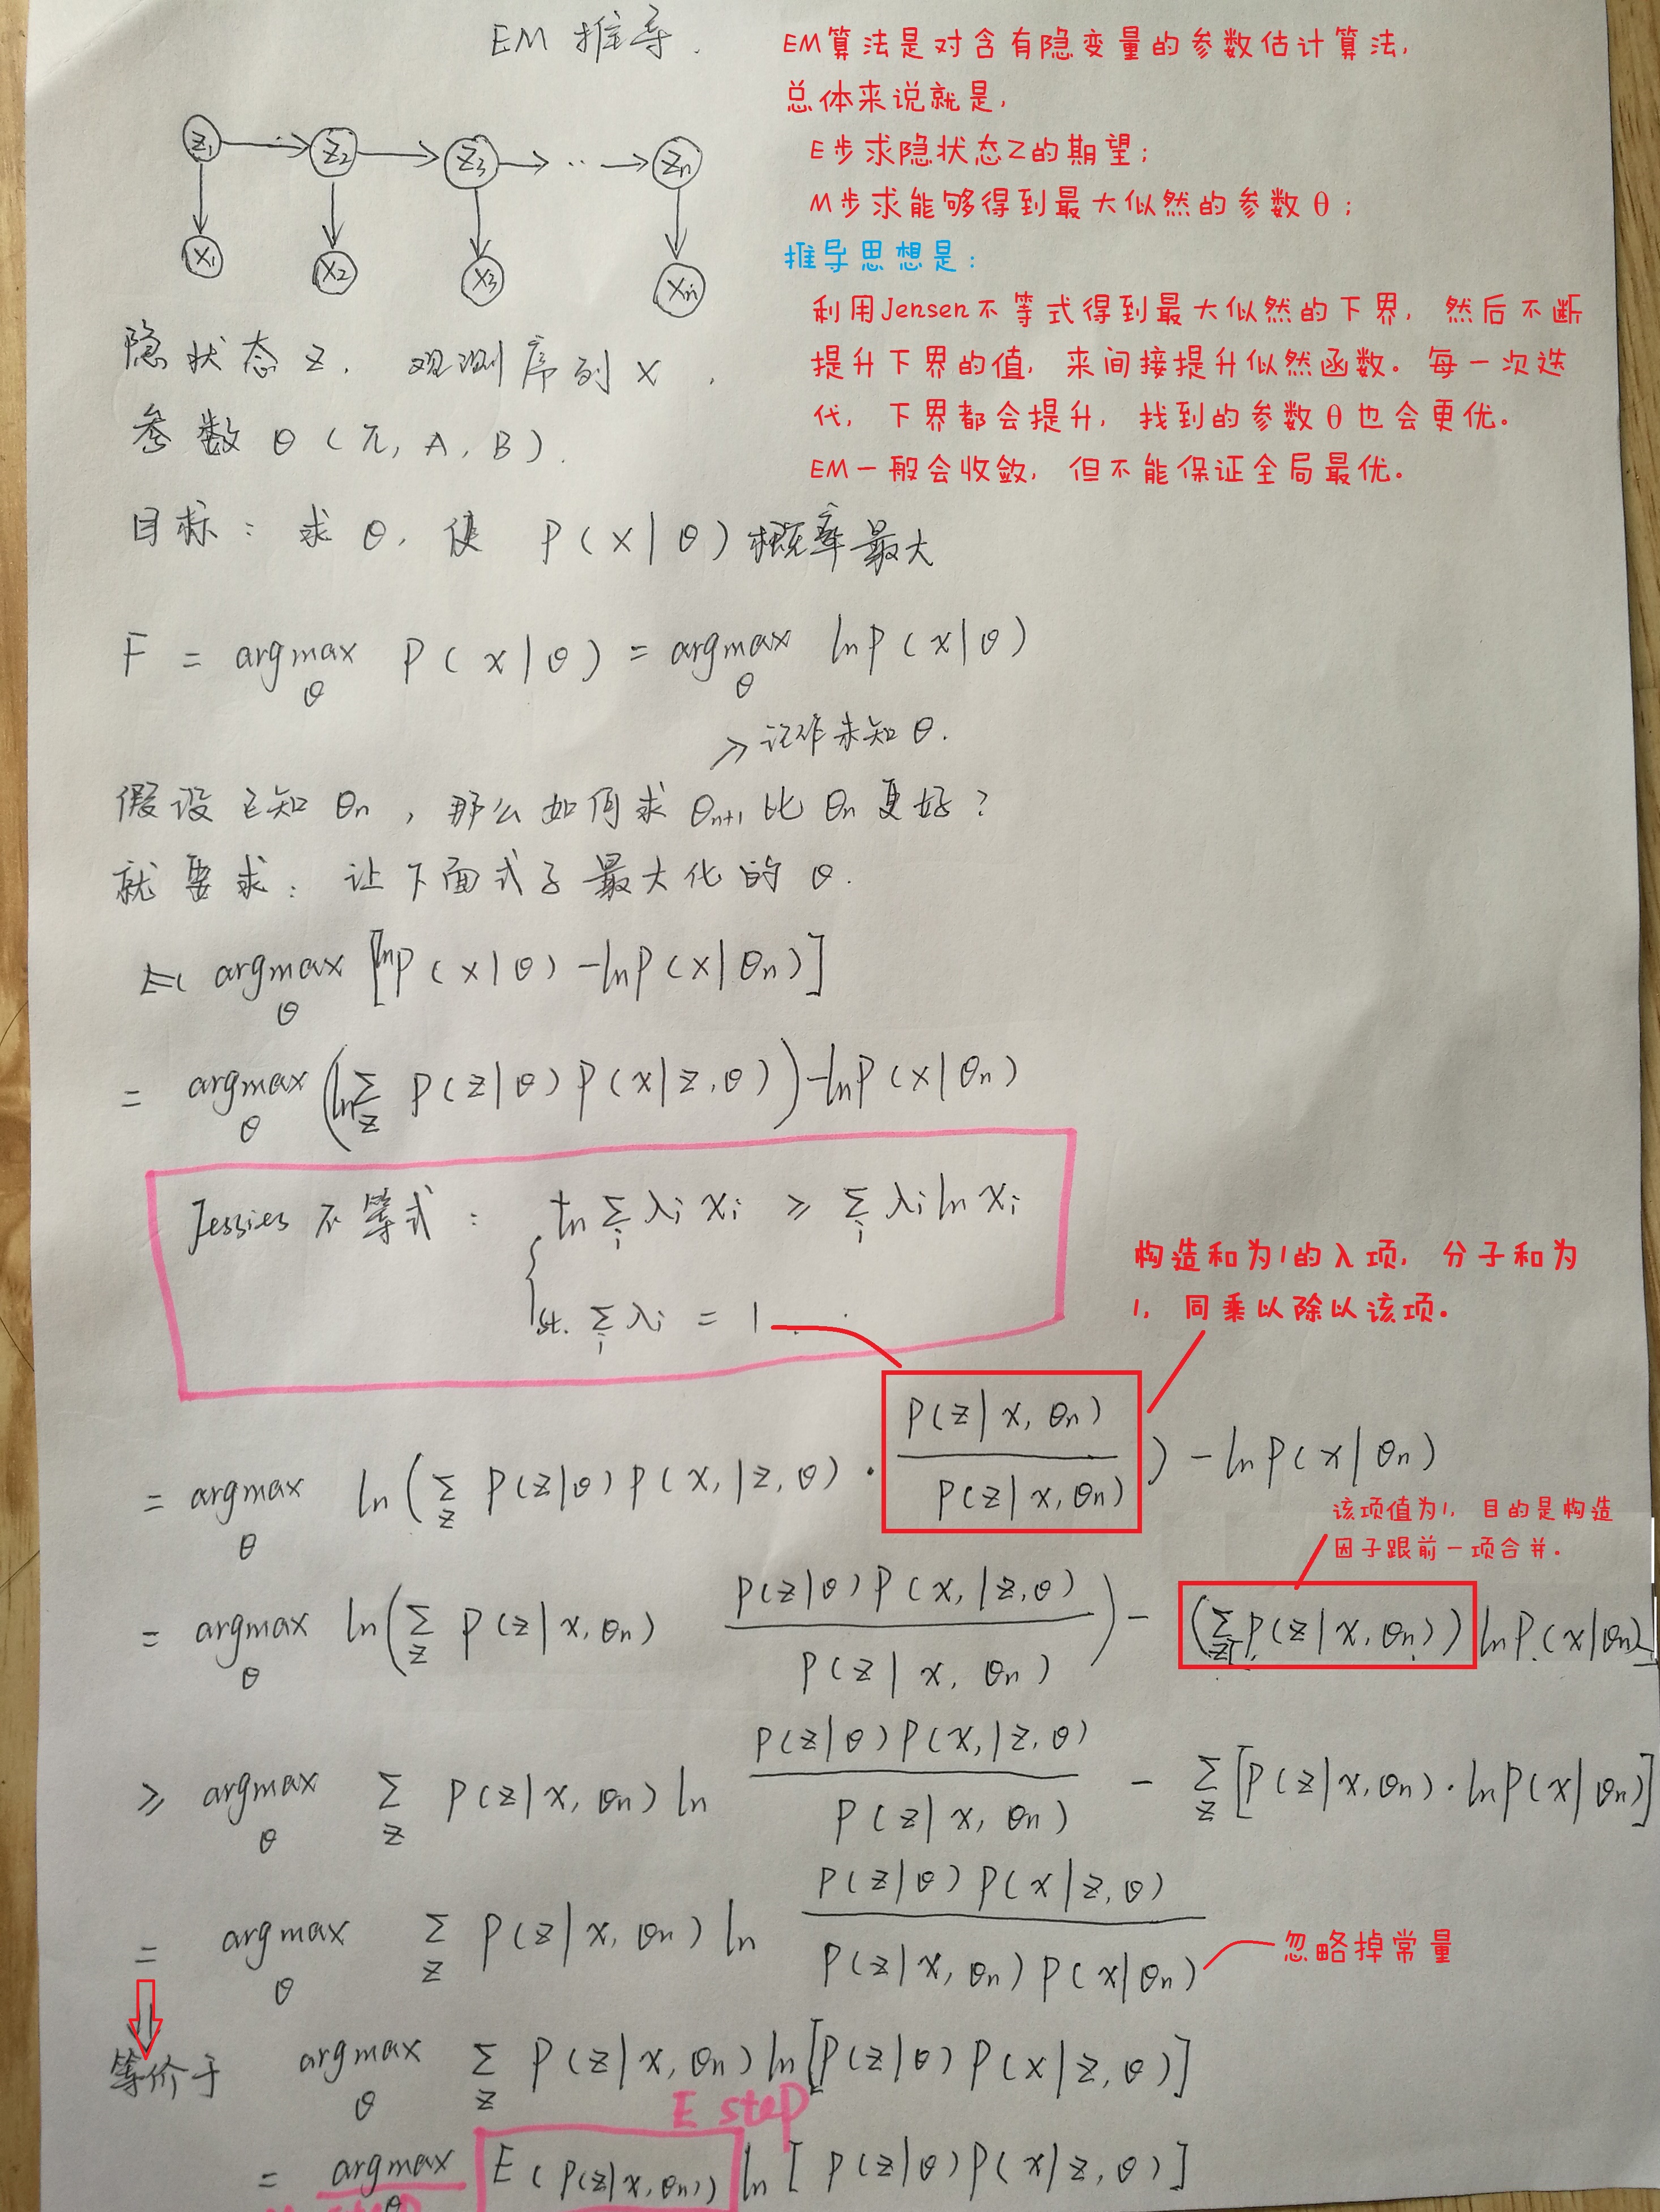 EM 推导.
EM算法是对含有隐变量的参数估计算法,
总体来说就是,
E步求隐状态Z的期望;
M步求能够得到最大似然的参数θ;
推导思想是:
利用Jensen不等式得到最大似然的下界, 然后不断
提升下界的值, 来间接提升似然函数。每一次迭
代, 下界都会提升, 找到的参数θ也会更优。
EM一般会收敛, 但不能保证全局最优。
Z1 → Z2 → Z3 → ·· → Zn
X1 X2 X3 Xn
隐状态 Z, 观测序列 X,
参数 θ (π, A, B).
目标: 求 θ, 使 P(X|θ) 概率最大
F = argmax P(X|θ) = argmax ln P(X|θ)
θ θ
→ 记作未知 θ.
假设已知 θn, 那么如何求 θn+1 比 θn 更好?
就要求: 让下面式子最大化的 θ.
argmax [ln P(X|θ) - ln P(X|θn)]
θ
= argmax (ln Σ P(Z|θ) P(X|Z,θ)) - ln P(X|θn)
θ Z
Jessies 不等式: ln Σ λi xi ≥ Σ λi ln xi
i i
st. Σ λi = 1
i
构造和为1的入项, 分子和为
1, 同乘以除以该项。
P(Z|X,θn)
= argmax ln (Σ P(Z|θ) P(X,|Z,θ) · ) - ln P(X|θn)
θ Z P(Z|X,θn)
该项值为1, 目的是构造
因子跟前一项合并.
P(Z|θ) P(X,|Z,θ)
= argmax ln (Σ P(Z|X,θn) ) - (Σ P(Z|X,θn)) ln P(X|θn)
θ Z P(Z|X,θn) Z
P(Z|θ) P(X,|Z,θ)
≥ argmax Σ P(Z|X,θn) ln - Σ [P(Z|X,θn) · ln P(X|θn)]
θ Z P(Z|X,θn) Z
P(Z|θ) P(X|Z,θ)
= argmax Σ P(Z|X,θn) ln
θ Z P(Z|X,θn) P(X|θn)
忽略掉常量
等价于 argmax Σ P(Z|X,θn) ln [P(Z|θ) P(X|Z,θ)]
θ Z
E step
= argmax E (P(Z|X,θn)) ln [P(Z|θ) P(X|Z,θ)]
θ